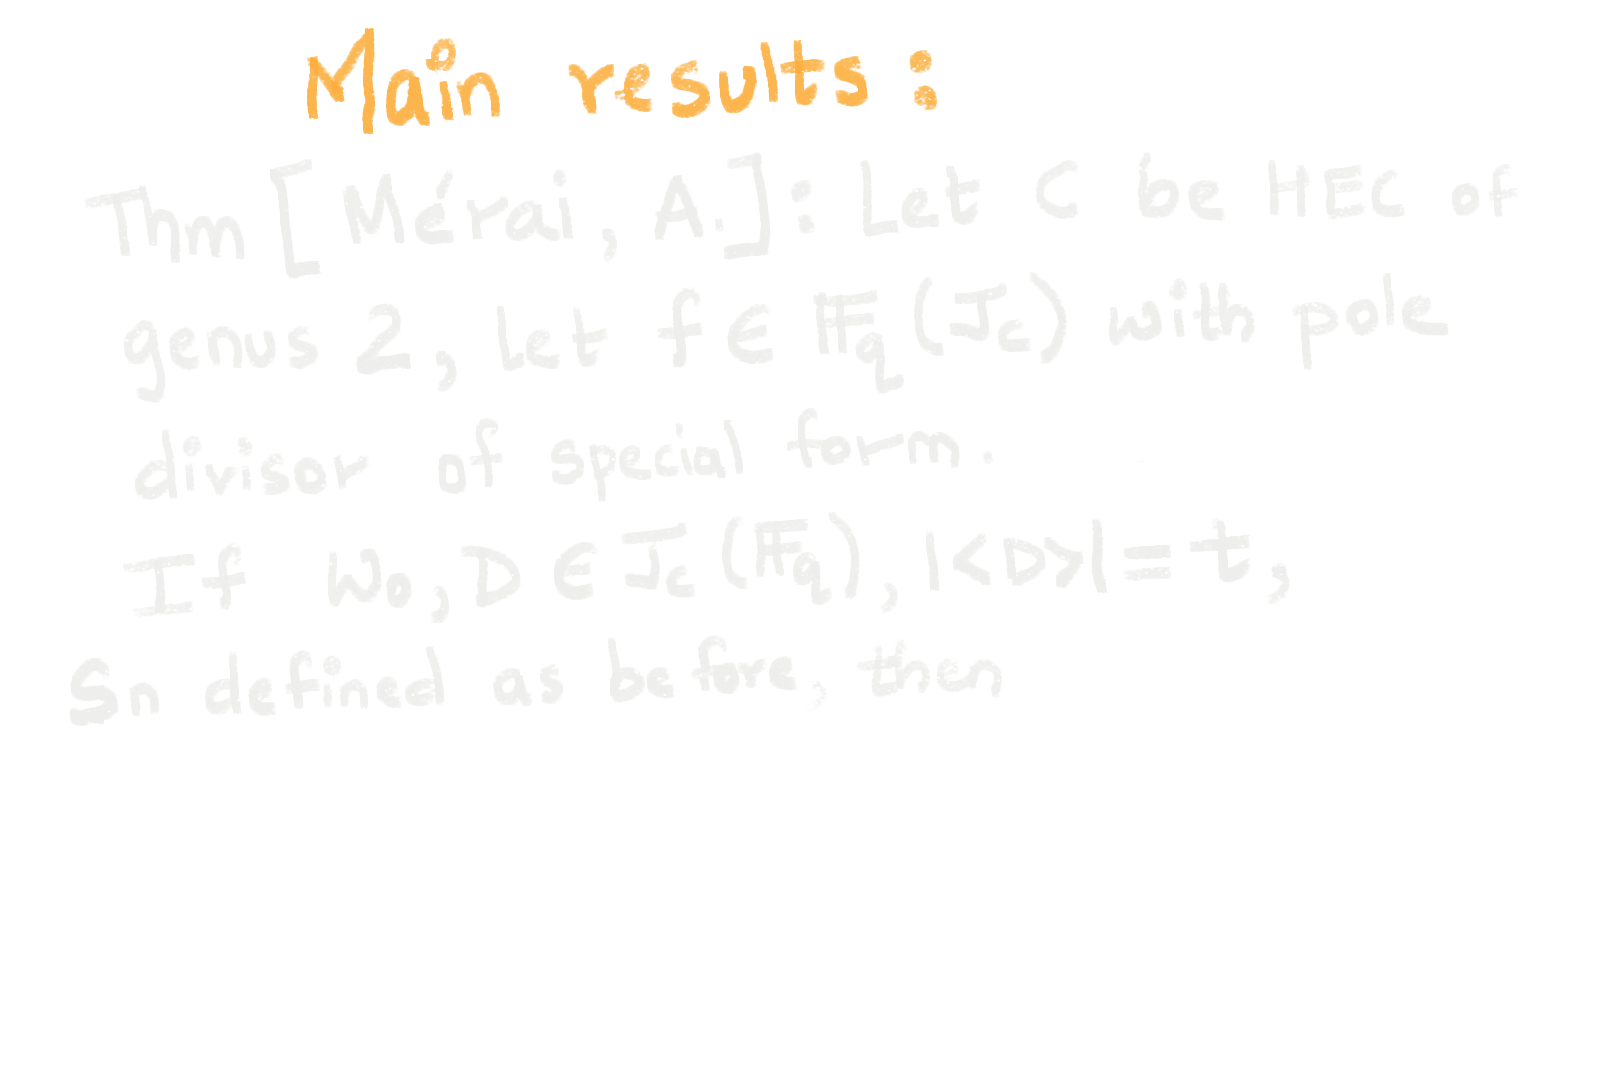 Main results :
Thm [Mérai, A.]: Let C be HEC of
genus 2, let f ∈ 𝔽q (Jc) with pole
divisor of special form.
If W₀, D ∈ Jc (𝔽q), |<D>| = t,
Sn defined as before, then